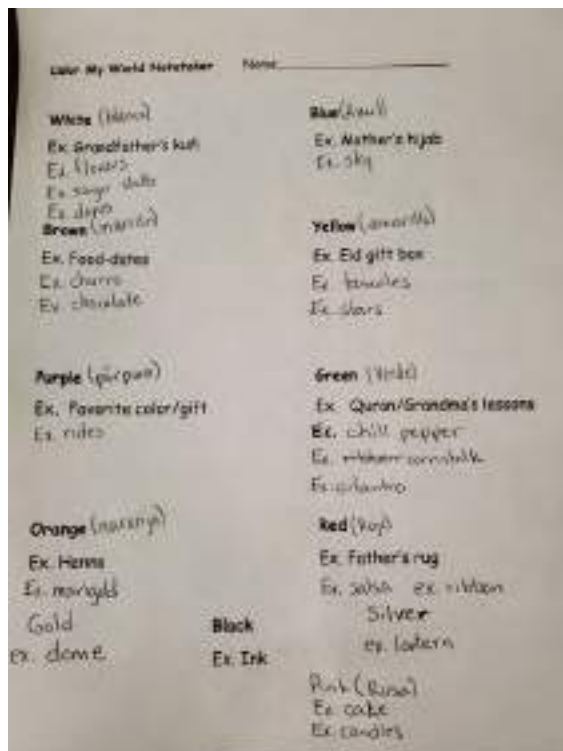 Color My World Notetaker Name:
White (blanco)
Ex. Grandfather's kufi
Ex. flowers
Ex. sugar skulls
Ex.
Brown (marrón)
Ex. Food-dates
Ex. churro
Ex. chocolate
Purple (púrpura)
Ex. Favorite color/gift
Ex. rides
Orange (naranja)
Ex. Henna
Ex. marigold
Gold
ex. dome
Black
Ex. Ink
Blue (Azul)
Ex. Mother's hijab
Ex. sky
Yellow (amarillo)
Ex. Eid gift box
Ex.
Ex. stars
Green (Verde)
Ex. Quran/Grandma's lessons
Ex. chili pepper
Ex. cornstalk
Ex. cilantro
Red (Rojo)
Ex. Father's rug
Ex. salsa ex. ribbon
Silver
ex. lantern
Pink (Rosa)
Ex. cake
Ex. candles